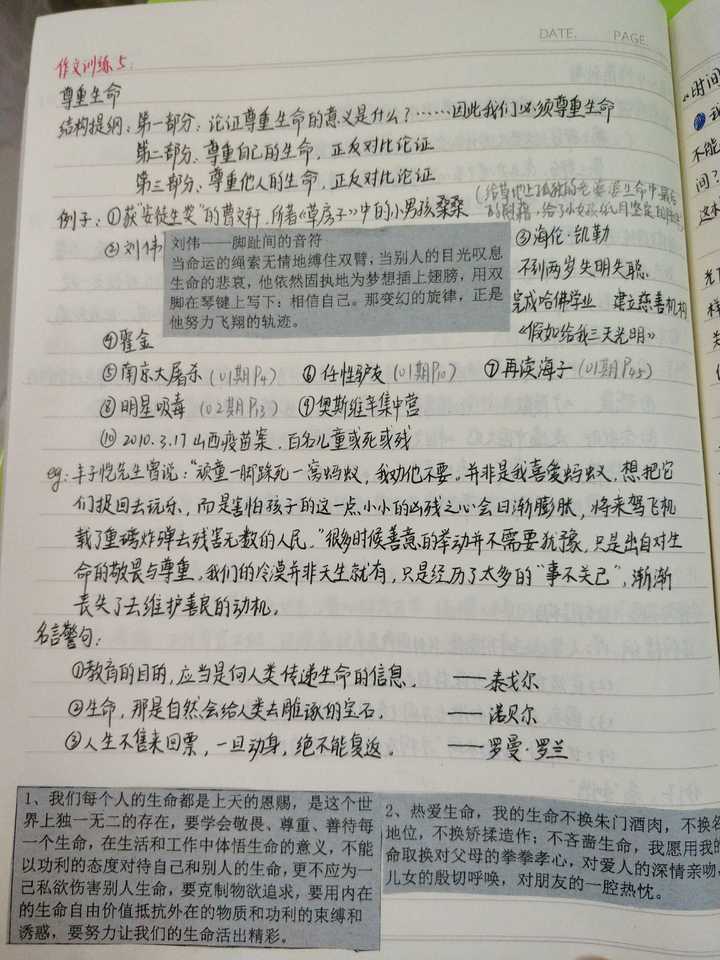 DATE. PAGE.
作文训练5:
尊重生命
结构提纲:第一部分:论证尊重生命的意义是什么?……因此我们必须尊重生命
第二部分、尊重自己的生命,正反对比论证
第三部分、尊重他人的生命,正反对比论证
例子:①获"安徒生奖"的曹文轩,所著《草房子》中的小男孩桑桑
(给草地上孤独的老婆婆生命中最后
的慰藉,给了小女孩纸月坚定的
②刘伟
刘伟——脚趾间的音符
当命运的绳索无情地缚住双臂,当别人的目光叹息
生命的悲哀,他依然固执地为梦想插上翅膀,用双
脚在琴键上写下:相信自己。那变幻的旋律,正是
他努力飞翔的轨迹。
③海伦·凯勒
不到两岁失明失聪
完成哈佛学业 建立慈善机构
《假如给我三天光明》
④霍金
⑤南京大屠杀(01期P4) ⑥任性驴友(01期P10) ⑦再读海子(01期P45)
⑧明星吸毒(02期P13) ⑨奥斯维辛集中营
⑩2010.3.17山西疫苗案,百名儿童或死或残
eg:丰子恺先生曾说:"顽童一脚踩死一窝蚂蚁,我劝他不要。并非是我喜爱蚂蚁,想把它
们捉回去玩乐,而是害怕孩子的这一点小小的凶残之心会日渐膨胀,将来驾飞机
载了重磅炸弹去残害无数的人民。"很多时候善意的举动并不需要犹豫,只是出自对生
命的敬畏与尊重。我们的冷漠并非天生就有,只是经历了太多的"事不关己",渐渐
丧失了去维护善良的动机。
名言警句:
①教育的目的,应当是向人类传递生命的信息。 ——泰戈尔
②生命,那是自然会给人类去雕琢的宝石。 ——诺贝尔
③人生不售来回票,一旦动身,绝不能复返。 ——罗曼·罗兰
1、我们每个人的生命都是上天的恩赐,是这个世
界上独一无二的存在,要学会敬畏、尊重、善待每
一个生命,在生活和工作中体悟生命的意义,不能
以功利的态度对待自己和别人的生命,更不应为一
己私欲伤害别人生命,要克制物欲追求,要用内在
的生命自由价值抵抗外在的物质和功利的束缚和
诱惑,要努力让我们的生命活出精彩。
2、热爱生命,我的生命不换朱门酒肉,不换名
地位,不换矫揉造作;不吝啬生命,我愿用我的
命取换对父母的拳拳孝心,对爱人的深情亲吻,
儿女的殷切呼唤,对朋友的一腔热忱。
《时间
不能
间?
这木